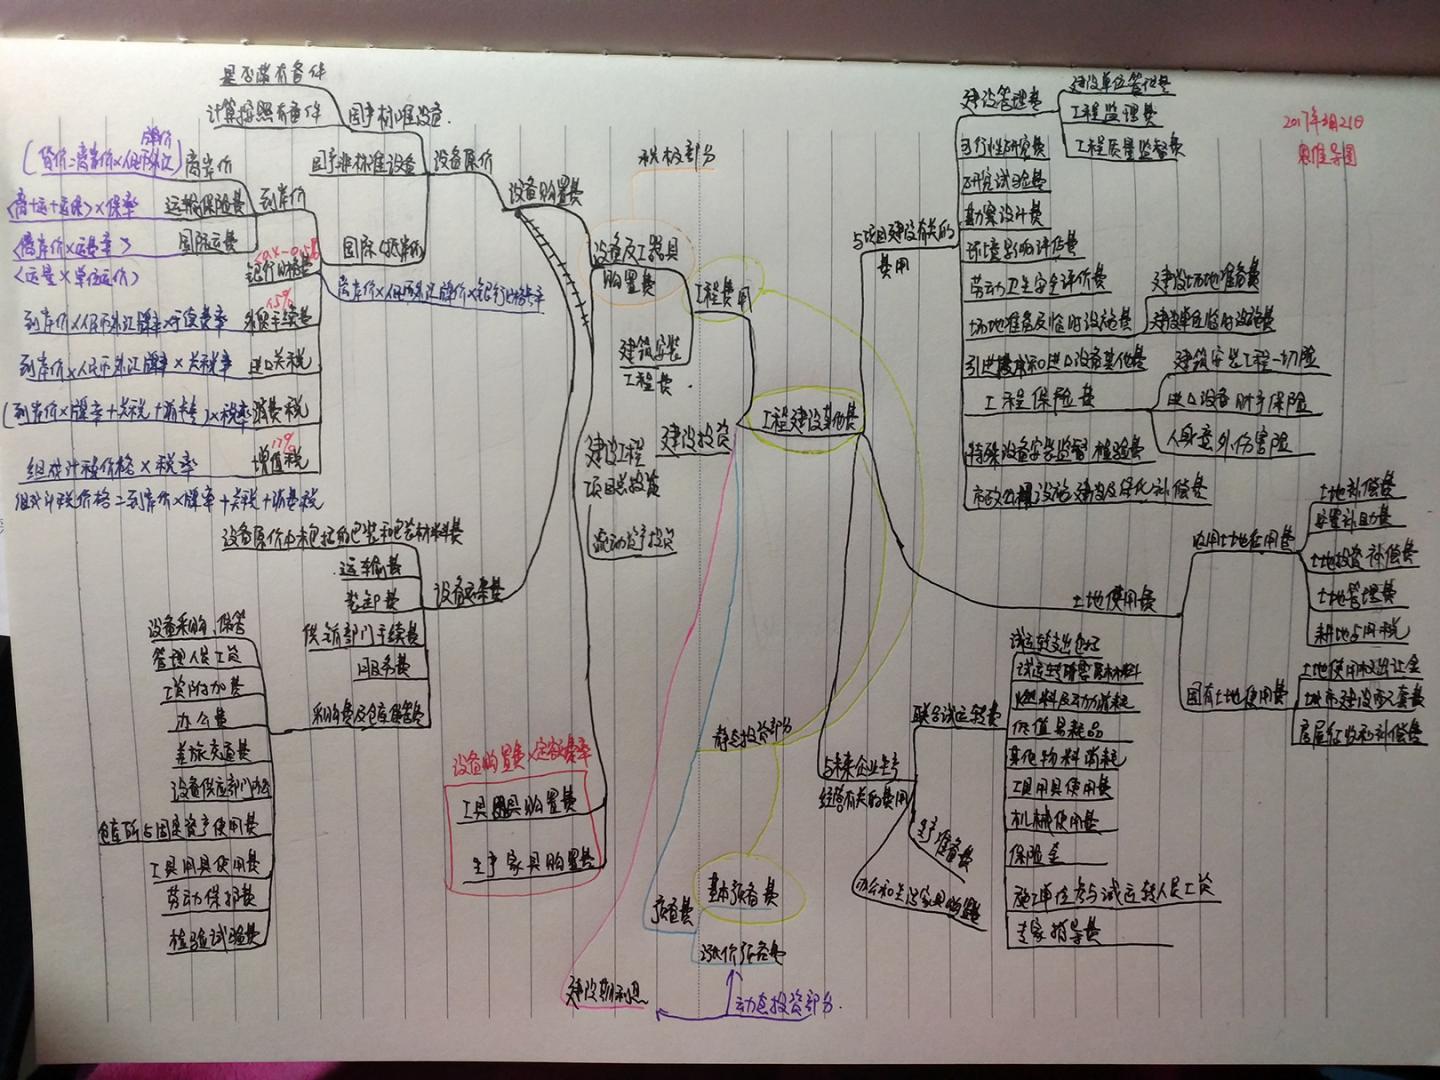 2017年3月21日
思维导图
是否带有备件
计算按照有备件
国产标准设备.
国产非标准设备
设备原价
设备购置费
离岸价
到岸价
运输保险费
国际运费
(离+运+运保)×保率
(离岸价×运费率)
(运量×单位运价)
银行财务费
1.5%
外贸手续费
到岸价×人民币外汇牌率×手续费率
进口关税
到岸价×人民币外汇牌率×关税率
消费税
17%
增值税
组成计税价格×税率
组成计税价格=到岸价×牌率+关税+消费税
设备原价中未包括的包装和包装材料费
运输费
装卸费
供销部门手续费
采购费及仓库保管费
设备运杂费
设备采购、保管
管理人员工资
工资附加费
办公费
差旅交通费
工具用具使用费
劳动保护费
检验试验费
设备购置费×定额费率
生产家具购置费
积极部分
设备及工器具
购置费
工程费用
建筑安装
工程费.
建设投资
建设工程
项目总投资
流动资产投资
工程建设其他费
静态投资部分
基本预备费
预备费
涨价预备费
建设期利息
动态投资部分.
与项目建设有关的
费用
建设管理费
建设单位管理费
工程监理费
工程质量监督费
可行性研究费
研究试验费
勘察设计费
环境影响评估费
劳动卫生安全评价费
场地准备及临时设施费
建设场地准备费
建设单位临时设施费
引进技术和进口设备其他费
工程保险费
建筑安装工程一切险
进口设备财产保险
人身意外伤害险
特殊设备安装监督检验费
市政公用设施建设及绿化补偿费
土地使用费
农用土地征用费
土地补偿费
安置补助费
土地投资补偿费
土地管理费
耕地占用税
国有土地使用费
土地使用权出让金
城市建设配套费
房屋征收和补偿费
与未来企业生产
经营有关的费用
联合试运转费
试运转支出包括
试运转所需原材料
燃料及动力消耗
低值易耗品
其他物料消耗
工具用具使用费
机械使用费
保险金
施工单位参与试运转人员工资
专家指导费
生产准备费
办公和生活家具购置费